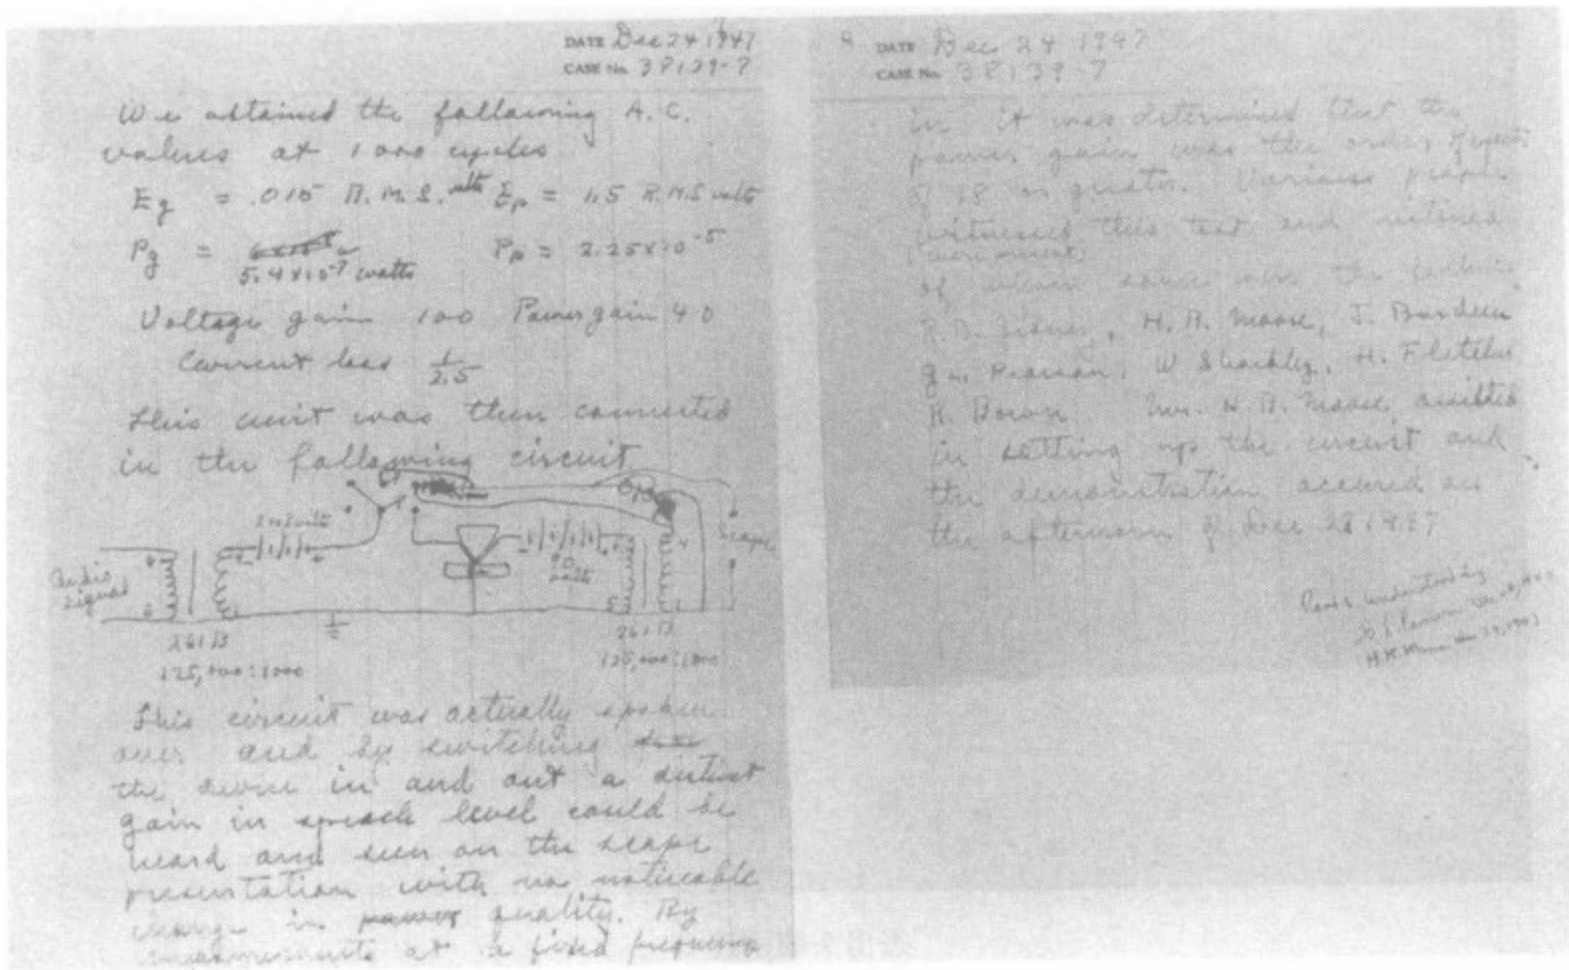 DATE Dec 24 1947
CASE No. 38139-7
We obtained the following A.C.
values at 1000 cycles
Eg = .015 R.M.S. volts Ep = 1.5 R.M.S volts
Pg = Pp = 2.25x10-5
5.4x10-7 watts
Voltage gain 100 Power gain 40
Current loss 1/2.5
This unit was then connected
in the following circuit
volts
90 volts
scope
audio
signal
261B
125,000:1000
261B
125,000:1000
This circuit was actually spoken
over and by switching
the device in and out a distinct
gain in speech level could be
heard and seen on the scope
presentation with no noticeable
change in power quality. By
measurements at a fixed frequency
DATE Dec 24 1947
CASE No. 38139-7
in it was determined that the
power gain was the order
of 18 or greater. Various people
witnessed this test and listened
of whom some were the following
R.B. Gibney, H.R. Moore, J. Bardeen
G.L. Pearson, W Shockley, H. Fletcher
R. Bown. Mr. H.R. Moore assisted
in setting up the circuit and
the demonstration occurred on
the afternoon of Dec 23 1947
Read & understood by
G.L. Pearson
H.R. Moore